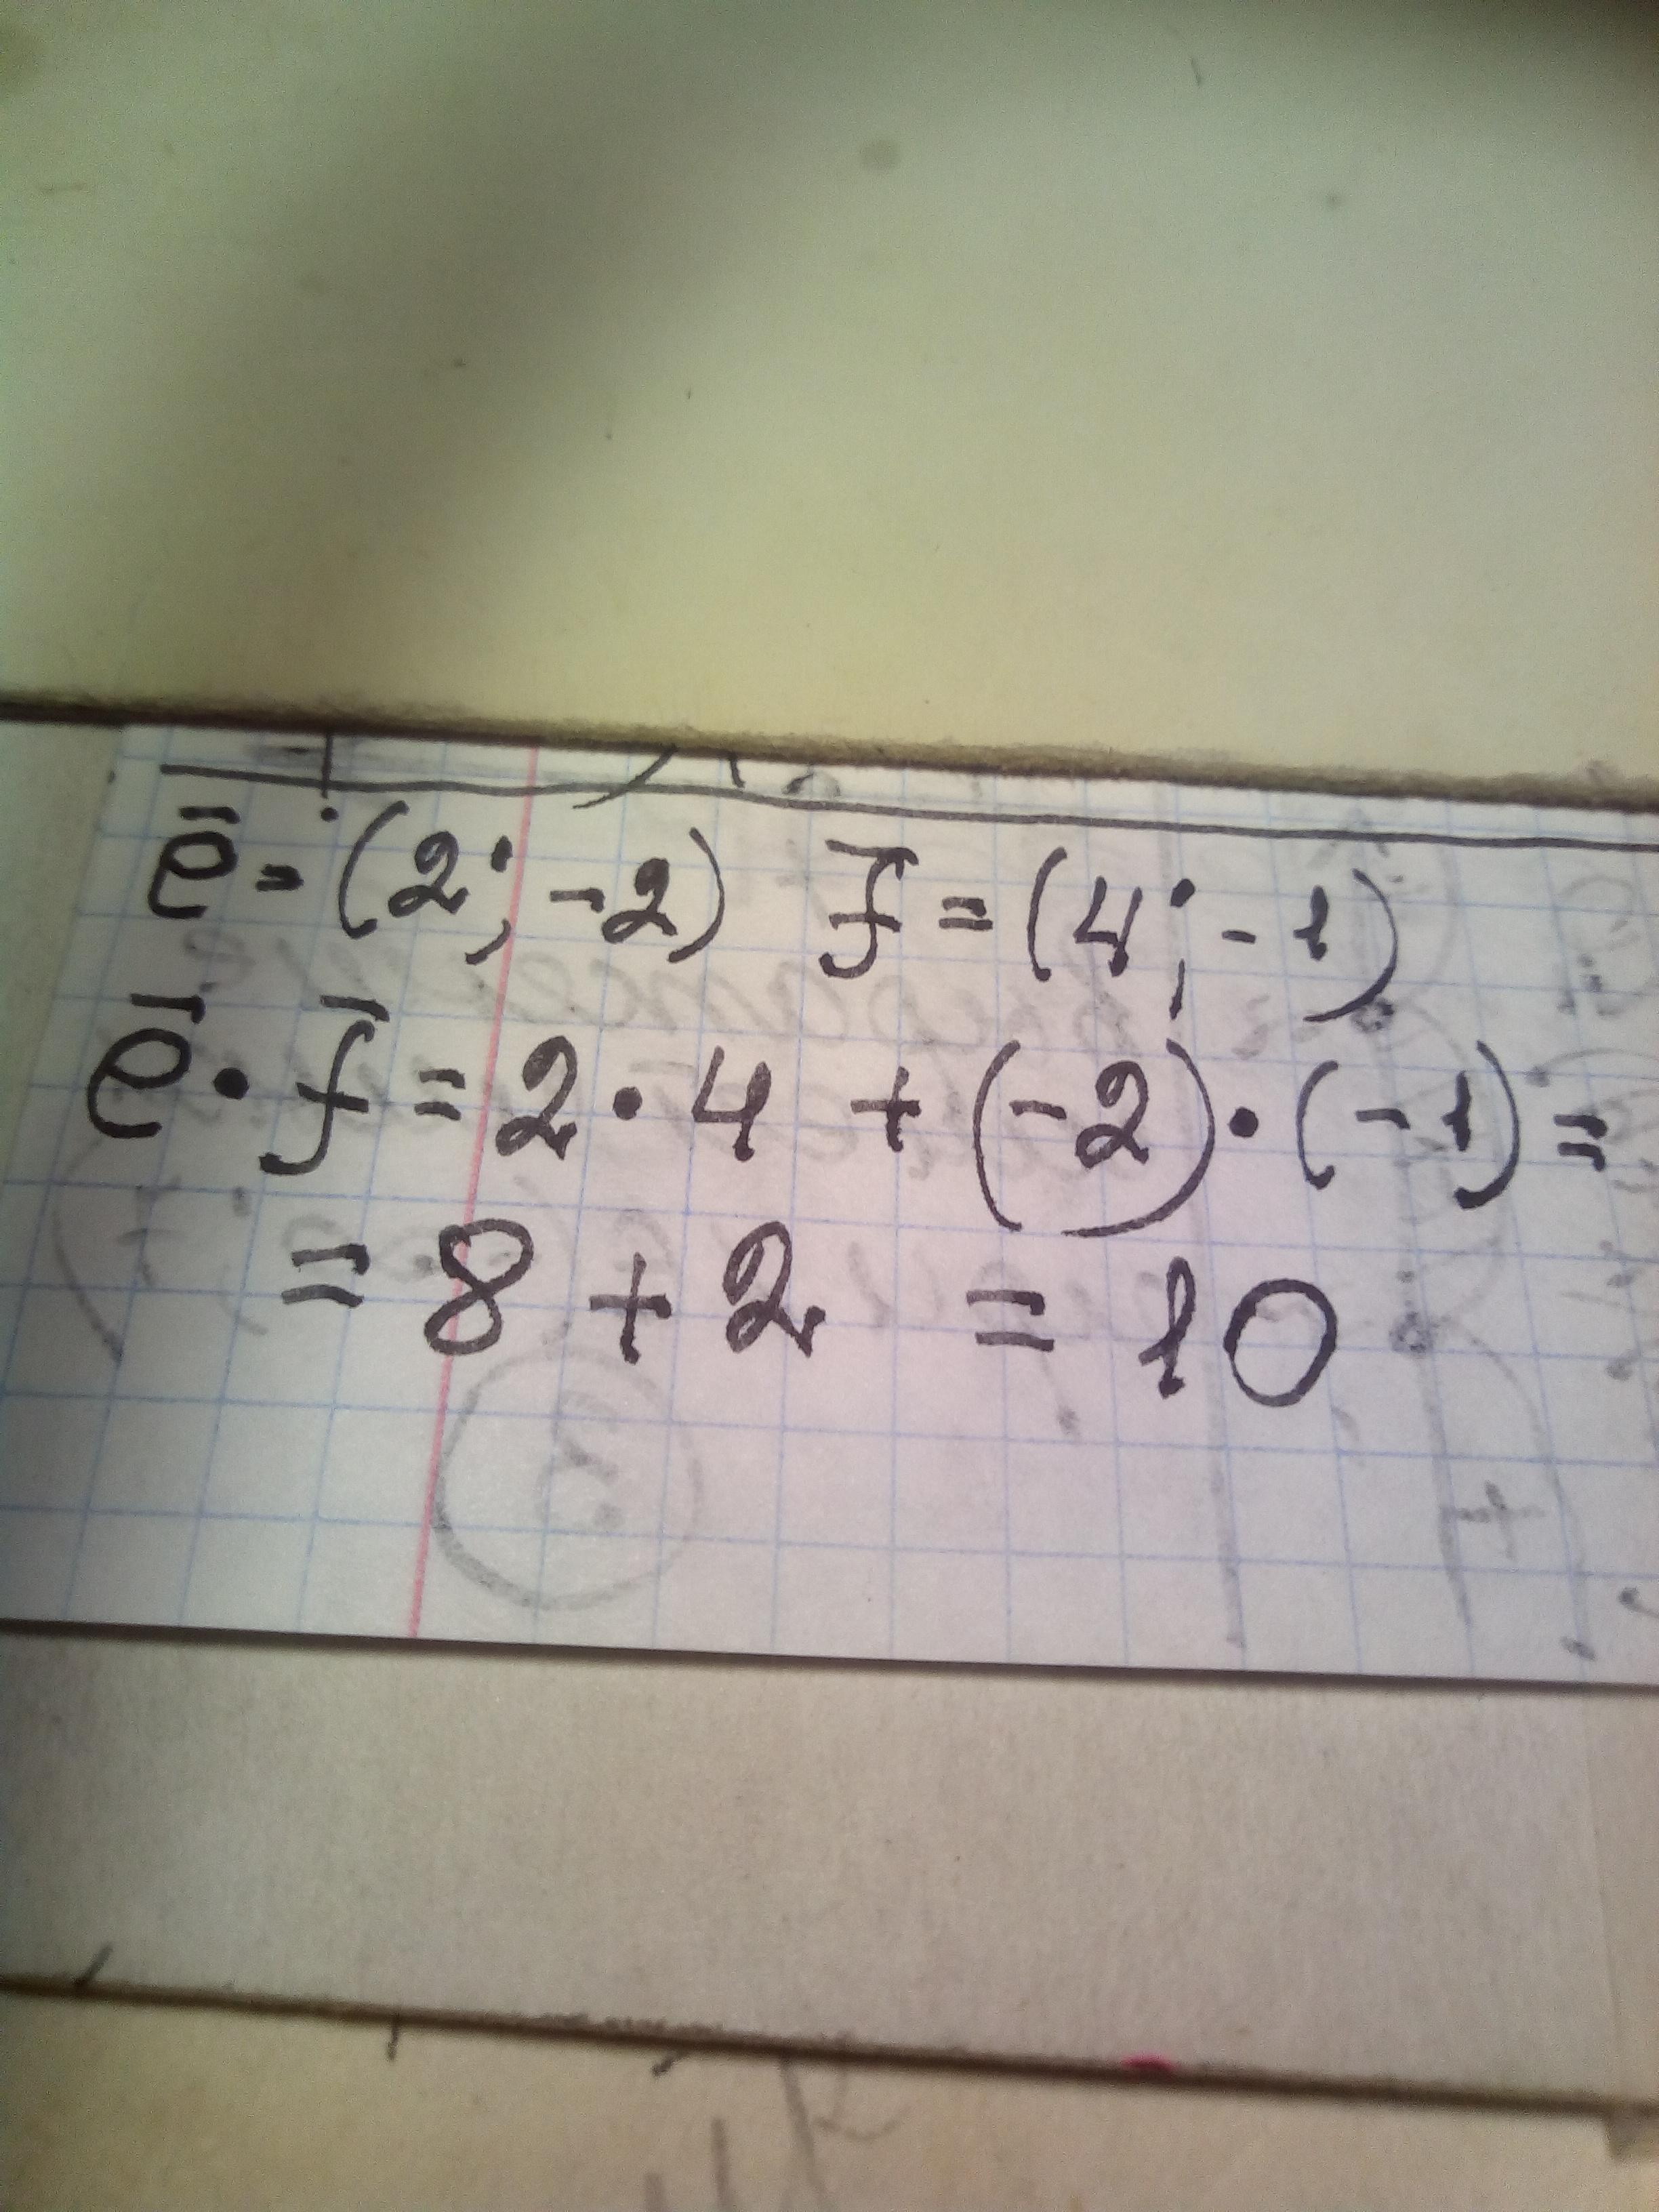 e̅ = (2; -2) f̅ = (4; -1)
e̅ · f̅ = 2 · 4 + (-2) · (-1) =
= 8 + 2 = 10